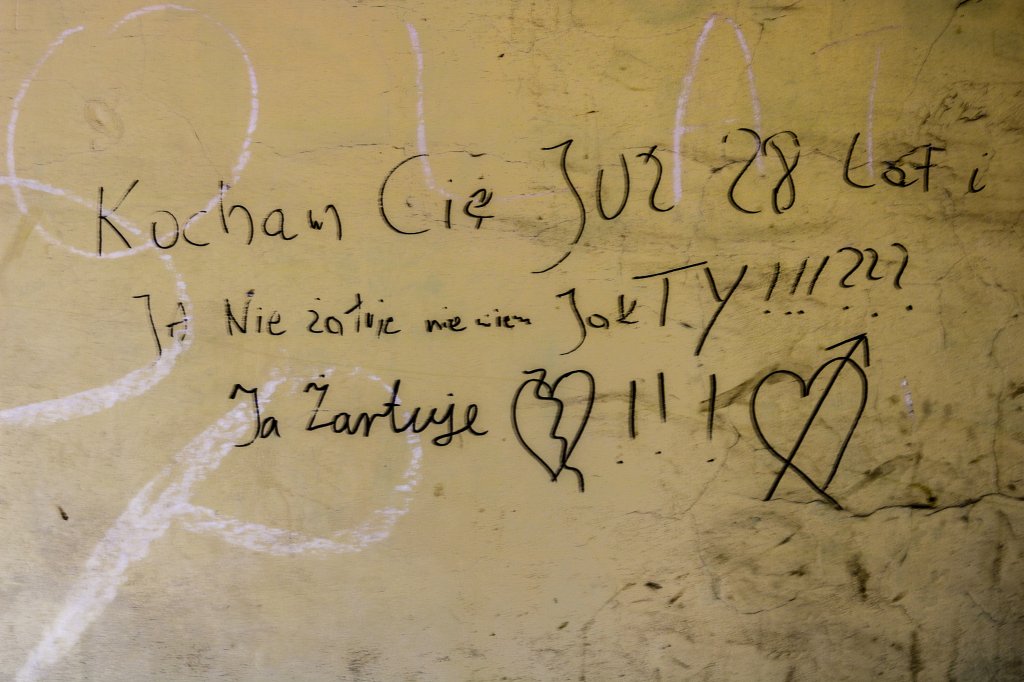 Kocham Cię Już 28 Lat i
JA Nie żałuje nie wiem Jak TY!!!???
Ja Żartuje !!!